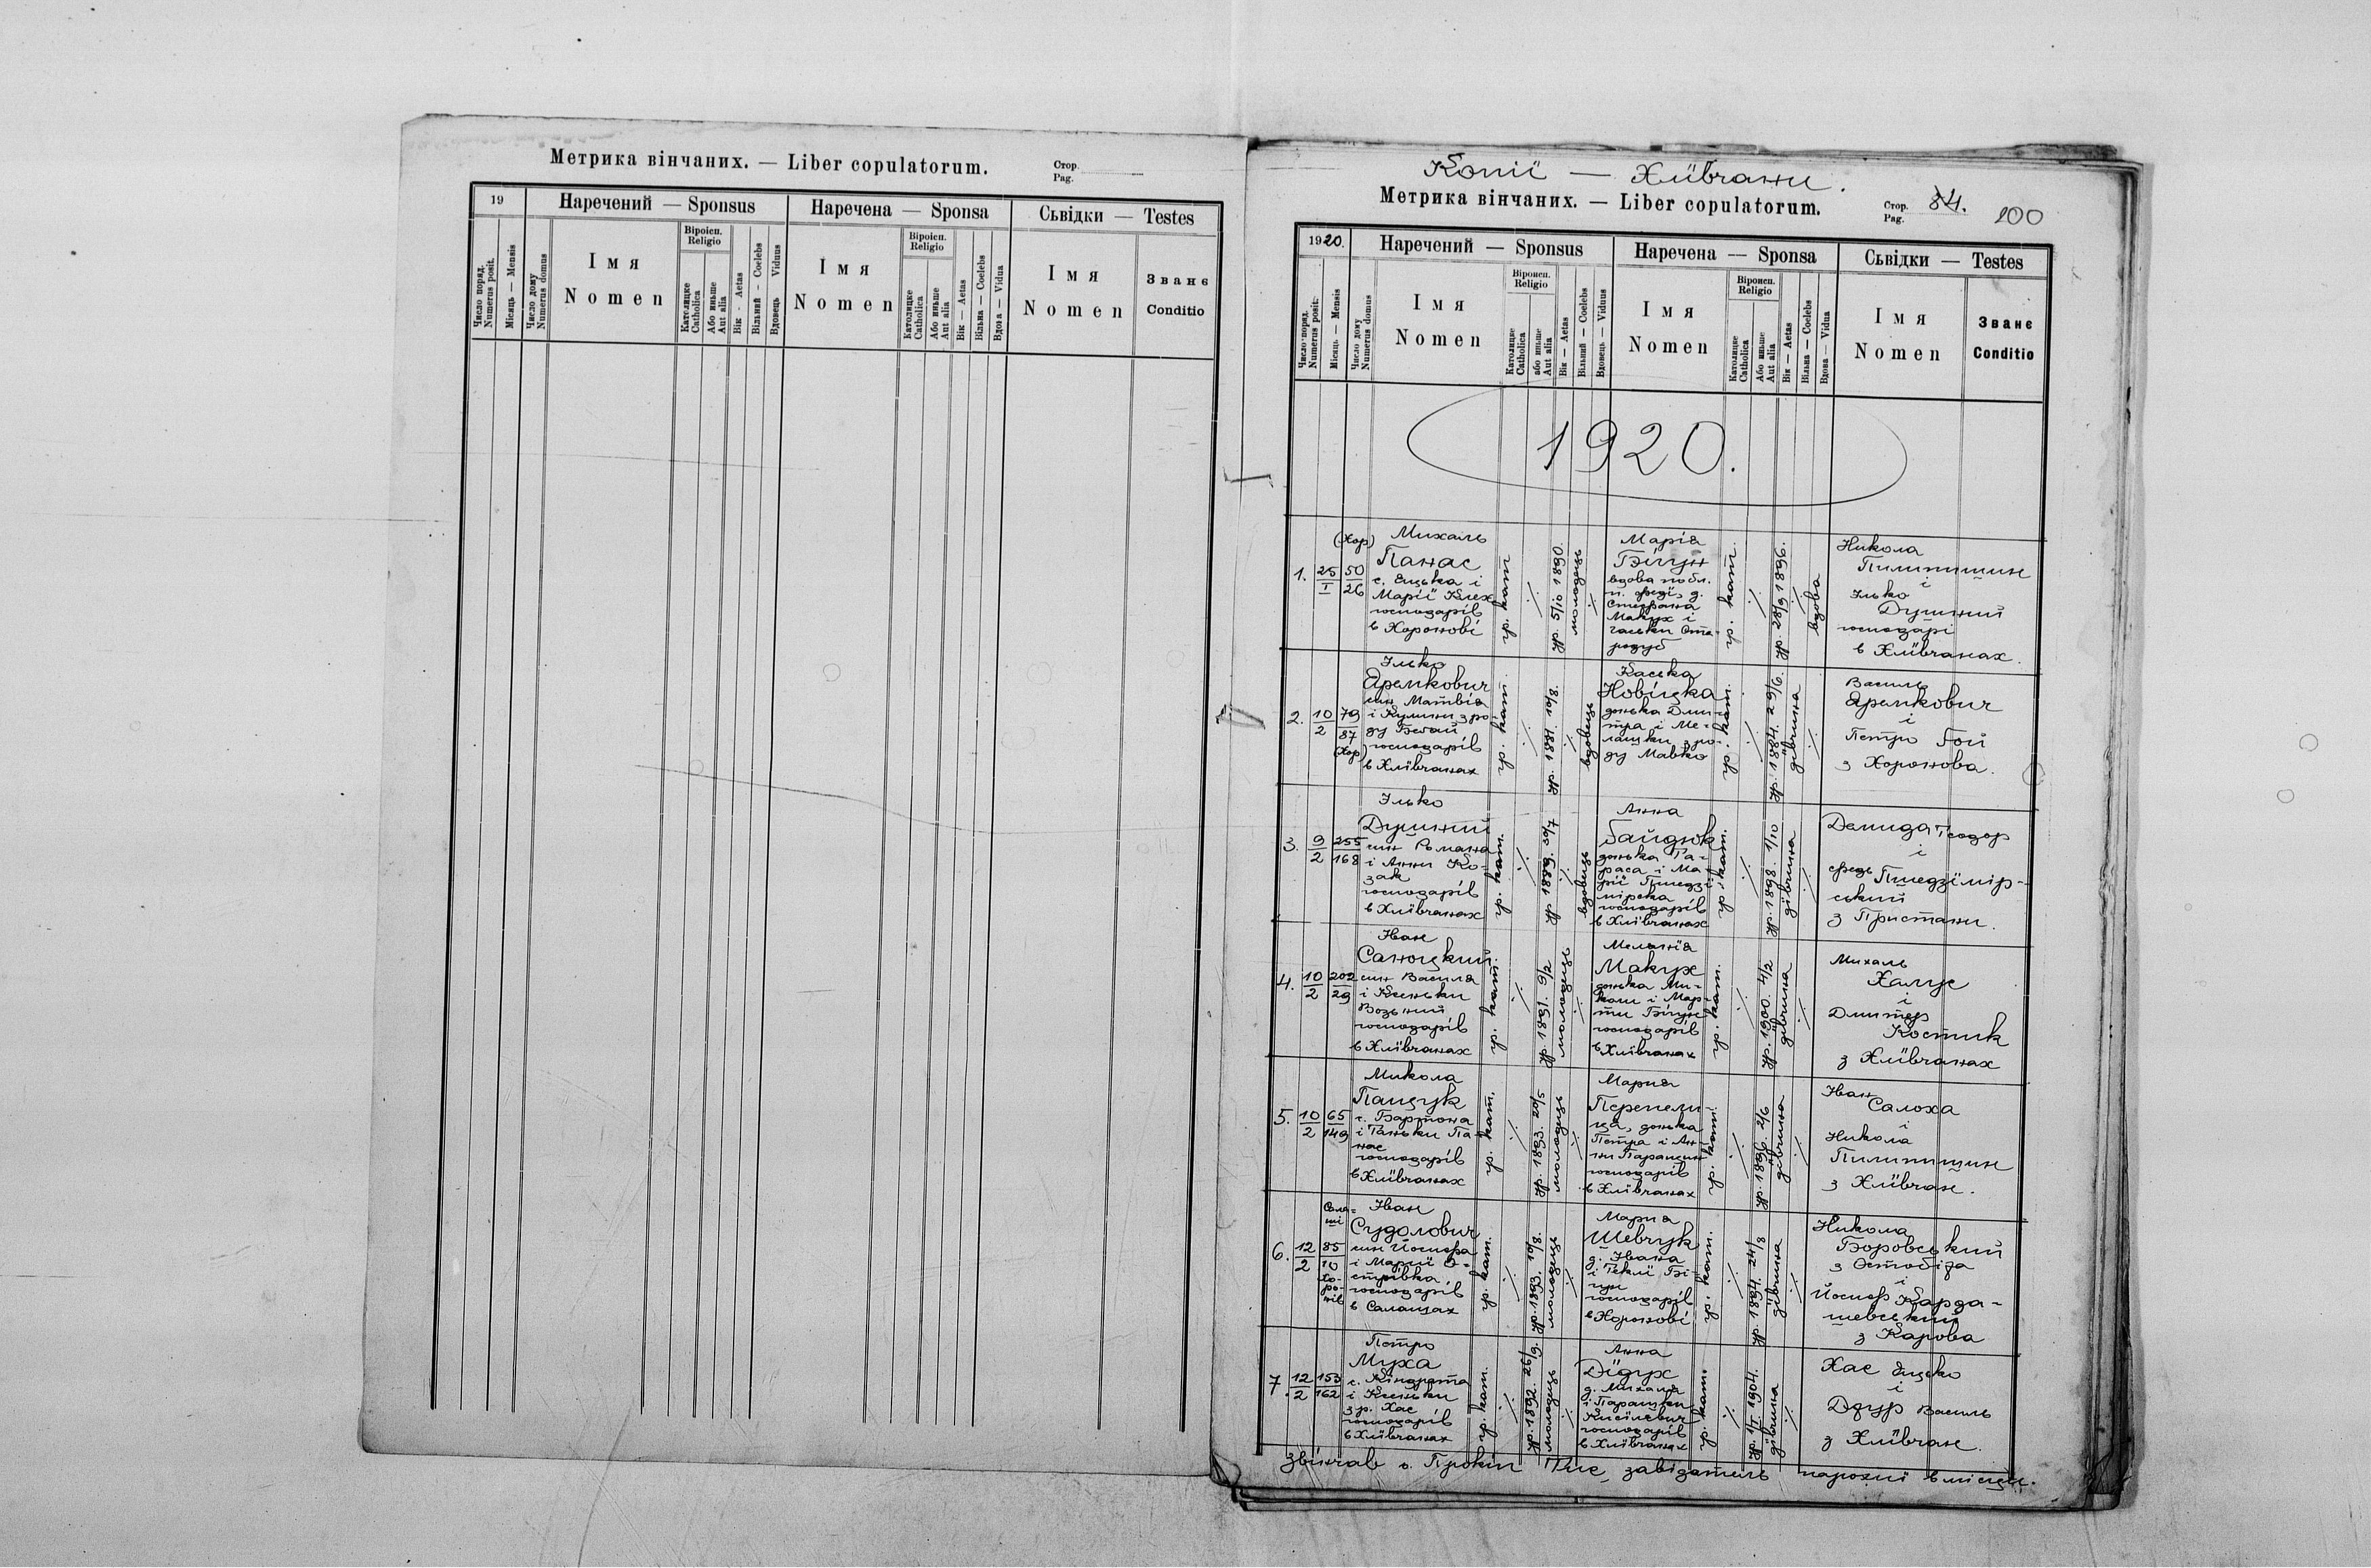 Метрика вінчаних. — Liber copulatorum.
Стор.
Pag.
19
Наречений — Sponsus
Наречена — Sponsa
Сьвідки — Testes
Число поряд.
Numerus posit.
Місяць — Mensis
Число дому
Numerus domus
Імя
Nomen
Віроісп.
Religio
Католицке
Catholica
Або иньше
Aut alia
Вік - Aetas
Вільний - Coelebs
Вдовець Viduus
Імя
Nomen
Віроісп.
Religio
Католицке
Catholica
Або иньше
Aut alia
Вік — Aetas
Вільна — Coelebs
Вдова — Vidua
Імя
Nomen
Званє
Conditio
Копії — Хлївчани.
Метрика вінчаних. — Liber copulatorum.
Стор.
Pag.
84.
200
1920.
Наречений — Sponsus
Наречена — Sponsa
Сьвідки — Testes
Число поряд.
Numerus posit.
Місяць — Mensis
Число дому
Numerus domus
Імя
Nomen
Віроисп.
Religio
Католицке
Catholica
або иньше
Aut alia
Вік — Aetas
Вільний — Coelebs
Вдовець — Viduus
Імя
Nomen
Віроисп.
Religio
Католицке
Catholica
Або иньше
Aut alia
Вік — Aetas
Вільна — Coelebs
Вдова — Vidua
Імя
Nomen
Званє
Conditio
1920.
1.
25
I
(Хор)
50
26
Михаль
Панас
с. Єцька і
Марії Клех
господарів
в Хоронові
гр. кат
ур. 5/10 1890.
молодець
Марія
Бігун
вдова по бл.
п. Федї, д.
Стефана
Макух і
гр. кат.
ур. 28/9 1896.
вдова
Никола
Пилипишин
і
Ілько
Душний
господарі
в Хлївчанах.
2.
10
2
79
87
(Хор)
Ілько
Яремкович
син Матвія
і Кулини з ро-
ду
господарів
в Хлївчанах
гр. кат.
ур. 1881. 10/8.
вдовець
Каська
Новіцка
донька Дми-
тра і Ме-
ланьки з ро-
ду Мавко
гр. кат.
ур. 1884. 29/6.
дївчина
Василь
Яремкович
і
Петро Гой
з Хоронова.
3.
9
2
255
168
Ілько
Душний
син Романа
і Анни Ко-
зак
господарів
в Хлївчанах
гр. кат.
ур 1889. 30/7
вдовець
Анна
Гайдюк
донька Та-
раса і Ма-
рії Пшедзі-
мірска
господарів
в Хлївчанах
гр. кат.
ур. 1898. 1/10
дївчина
Демида Теодор
і
Федь Пшедзїмір-
ський
з Пристани.
4.
10
2
202
29
Іван
Саноцкий
син Василя
і Ксеньки
Возьний
господарів
в Хлївчанах
гр. кат.
ур. 1891. 9/2
молодець
Меланїя
Макух
донька Ми-
коли і Мар-
ти Бігун
господарів
в Хлївчанах
гр. кат.
ур. 1900. 4/2
дївчина
Михаль
Халус
і
Дмитер
Костик
з Хлївчанах
5.
10
2
65
149
Микола
Пащук
с. Бартона
і Таньки Па-
нас
господарів
в Хлївчанах
гр. кат.
ур. 1893. 20/5
молодець
Мария
Перепели-
ца, донька
Петра і Ан-
ни
господарів
в Хлївчанах
гр. кат.
ур. 1896. 2/6
дївчина
Іван
Салоха
і
Никола
Пилипишин
з Хлївчан.
6.
12
2
Сала-
ші
85
10
Хо-
ро-
нів
Іван
Судолович
син Йосифа
і Марії О-
стрівка
господарів
в Салашах
гр. кат.
ур. 1893. 10/8.
молодець
Мария
Шевчук
д. Івана
і Теклї Бі-
гун
господарів
в Хоронові
гр. кат.
ур. 1894. 24/8
дївчина
Никола
Боровський
з Остобіжа
і
Йосиф Карда-
шевський
з Карова
7.
12
2
153
162
Петро
Муха
с. Кіндрата
і Ксеньки
з р. Хас
господарів
в Хлївчанах
гр. кат.
ур. 1892. 26/9.
молодець
Анна
Дїдух
д. Михаля
і Парашки
Кисїлевич
господарів
в Хлївчанах
гр. кат.
ур. 1/I 1904.
дївчина
Хас Єцько
і
Дзур Василь
з Хлївчан.
звінчав о. Прокіп завідатель парохиї в місци.